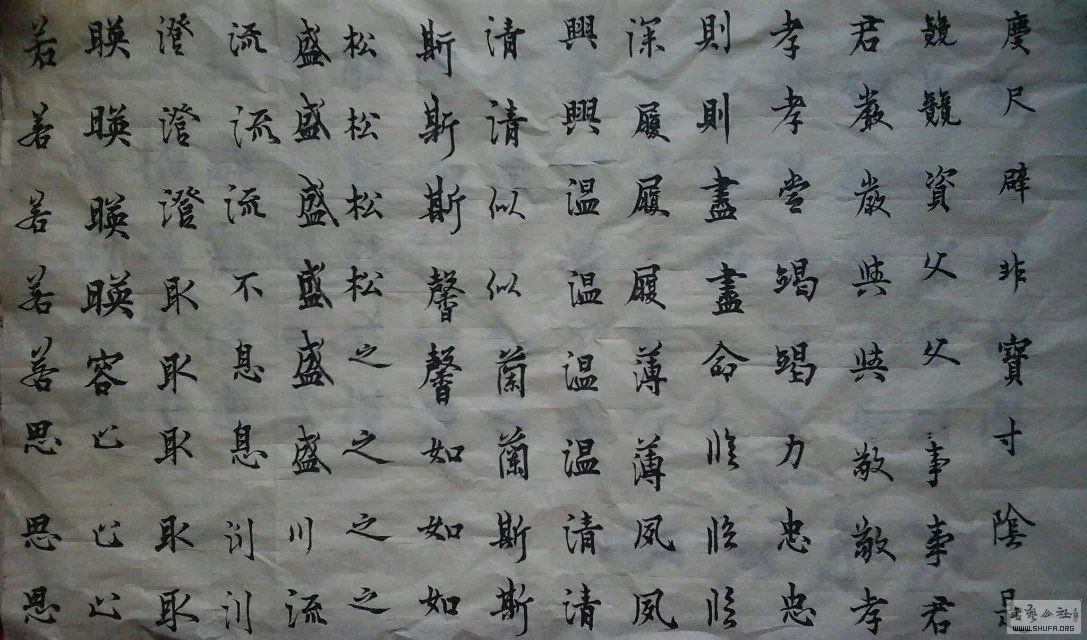 慶尺辟非寶寸陰是
競競資父父事事君
君嚴嚴與與敬敬孝
孝孝當竭竭力忠忠
則則盡盡命臨臨臨
深履履履薄薄夙夙
興興温温温温清清
清清似似蘭蘭斯斯
斯斯斯馨馨如如如
松松松松之之之之
盛盛盛盛盛盛川流
流流流不息息淵淵
澄澄澄取取取取取
暎暎暎暎容止止止
若若若若若思思思
WWW.SHUFA.ORG